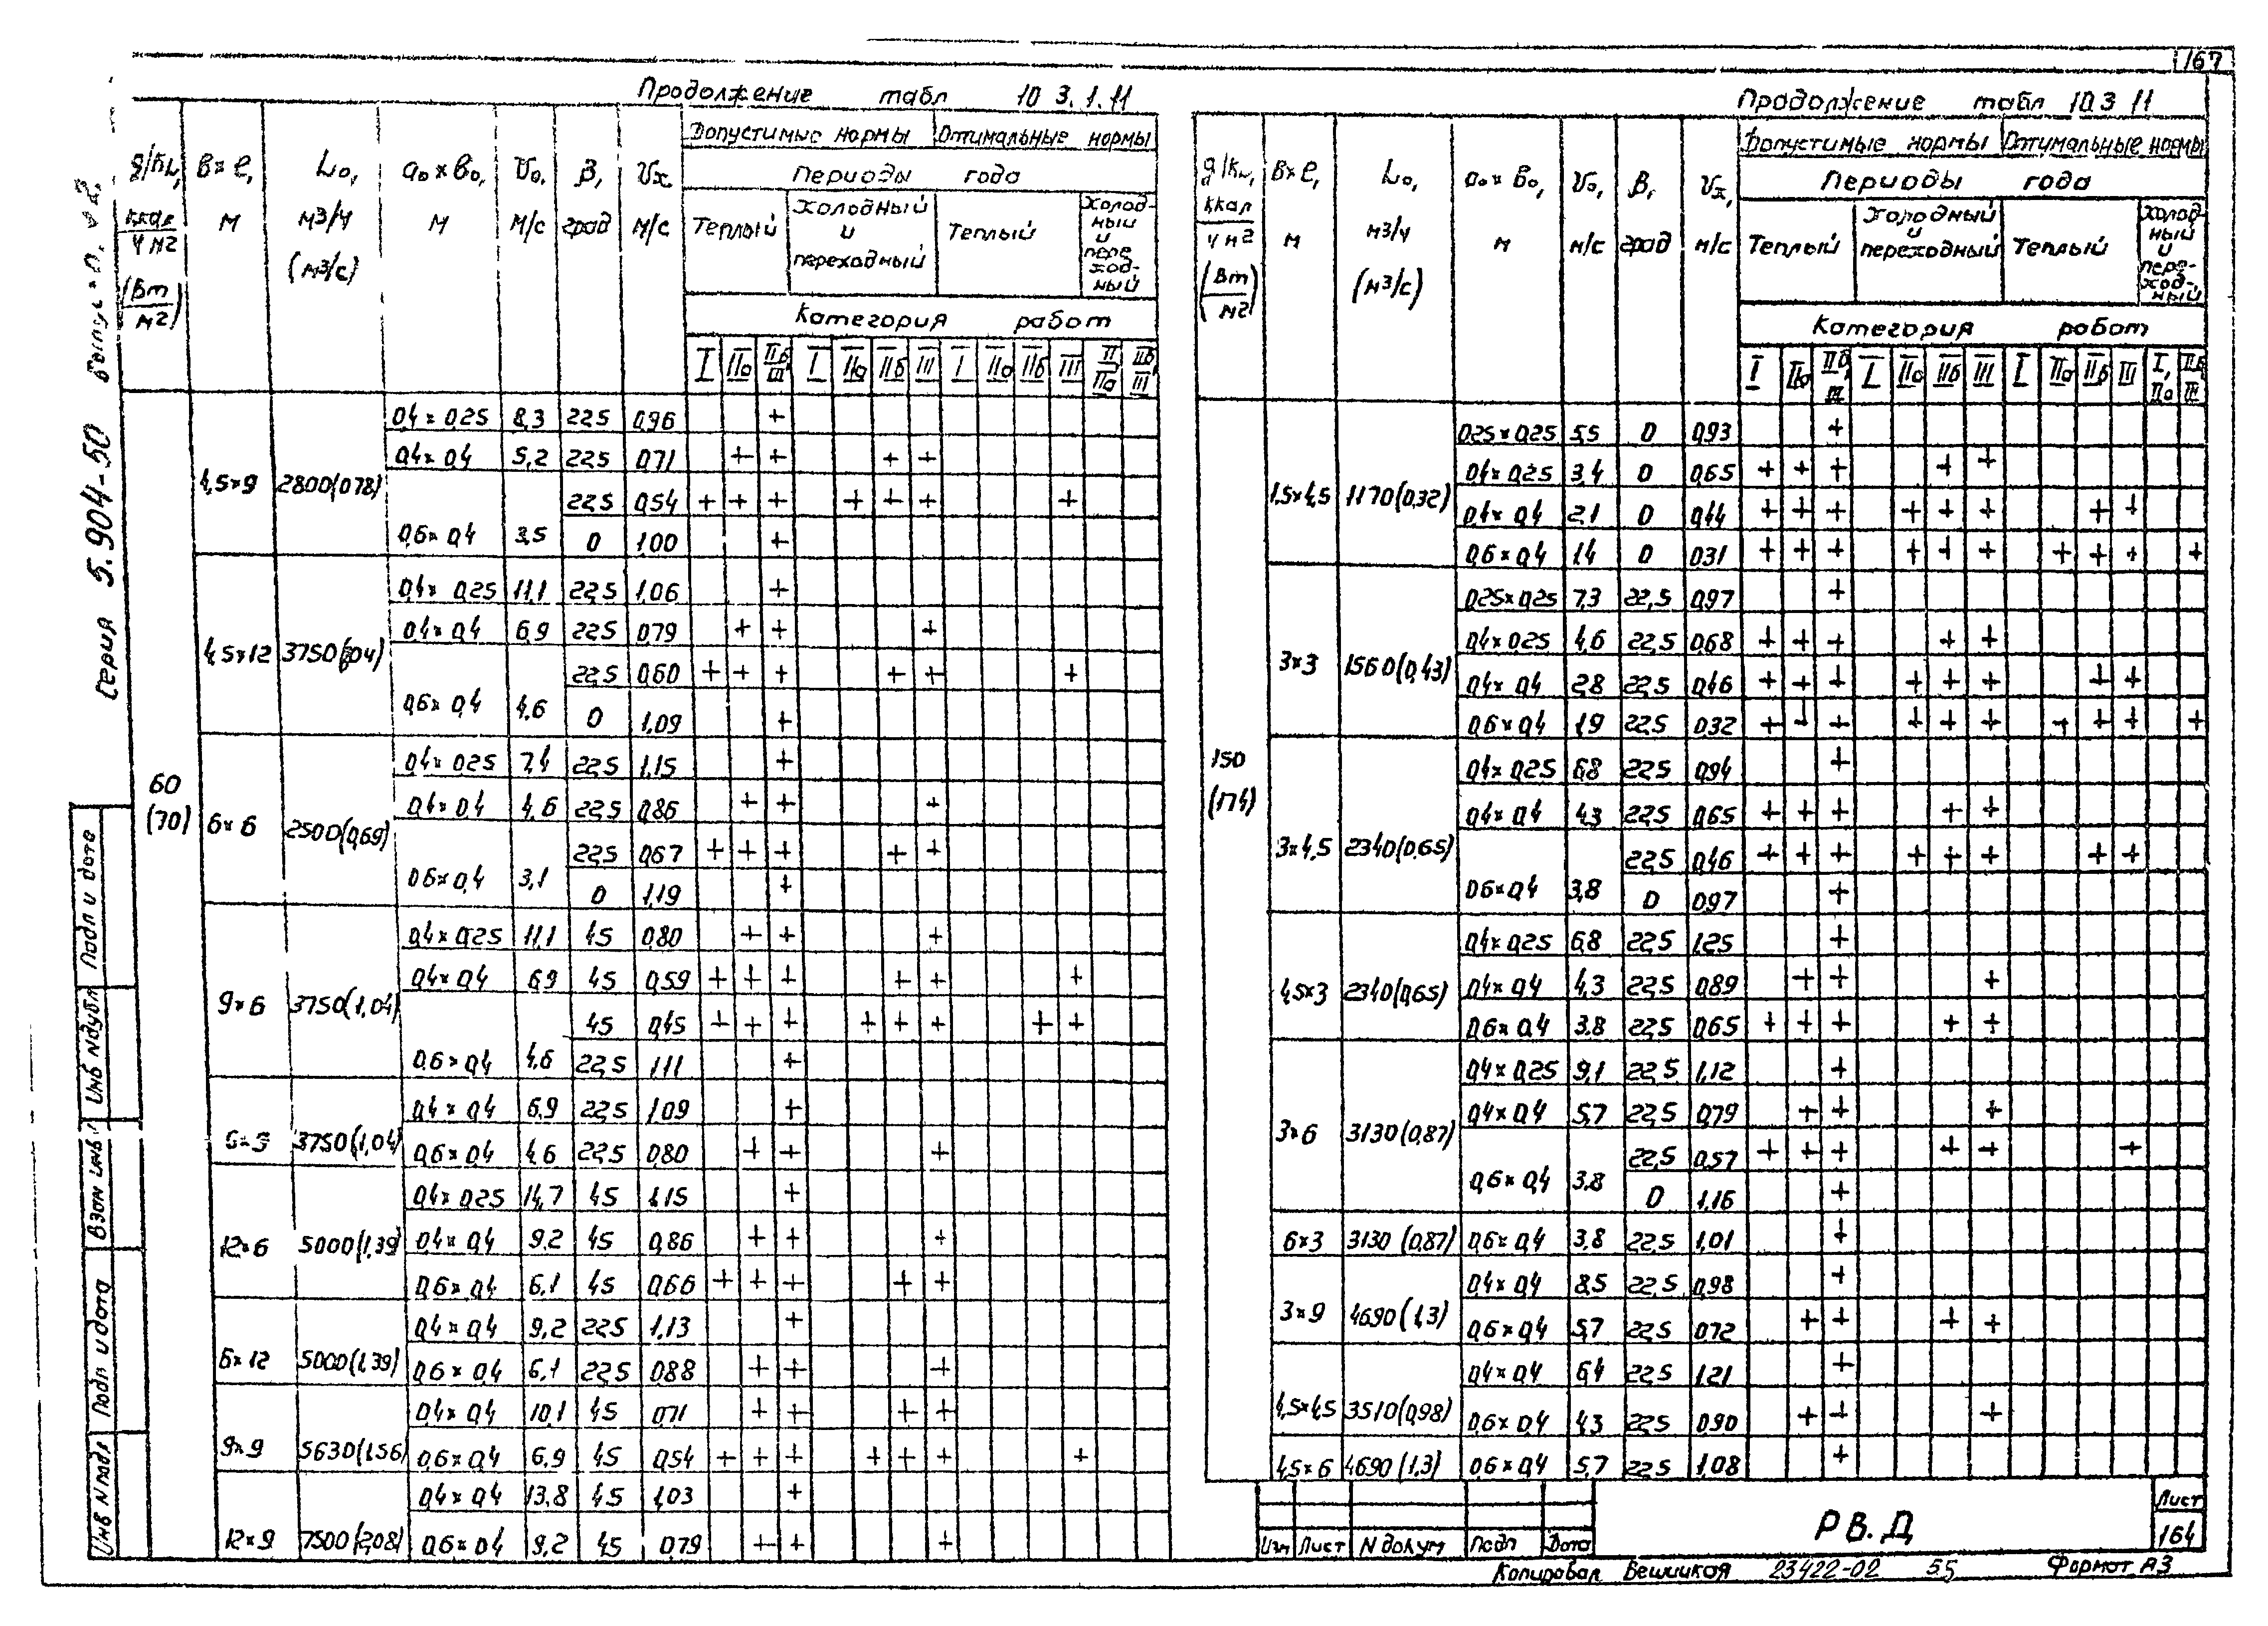 167
Продолжение табл 10 3.1.11
g/Fн, в×l, L₀, a₀×в₀, V₀, β, Vх
ккал/ч м2 м м3/ч м м/с град м/с
(Вт/м2) (м3/с)
Допустимые нормы Оптимальные нормы
Периоды года
Теплый Холодный и переходный Теплый Холодный и переходный
Категория работ
I IIа IIб III I IIа IIб III I IIа IIб III I IIа IIб III
60 (70)
4,5×9 2800(0,78)
0,4×0,25 8,3 22,5 0,96 +
0,4×0,4 5,2 22,5 0,71 + + + +
22,5 0,54 + + + + + + +
0,6×0,4 3,5 0 1,00 +
4,5×12 3750(1,04)
0,4×0,25 11,1 22,5 1,06 +
0,4×0,4 6,9 22,5 0,79 + + +
22,5 0,60 + + + + + +
0,6×0,4 4,6 0 1,09 +
6×6 2500(0,69)
0,4×0,25 7,4 22,5 1,15 +
0,4×0,4 4,6 22,5 0,86 + + +
22,5 0,67 + + + + +
0,6×0,4 3,1 0 1,19 +
9×6 3750(1,04)
0,4×0,25 11,1 45 0,80 + + +
0,4×0,4 6,9 45 0,59 + + + + + +
45 0,45 + + + + + + + +
0,6×0,4 4,6 22,5 1,11 +
6×9 3750(1,04)
0,4×0,4 6,9 22,5 1,09 +
0,6×0,4 4,6 22,5 0,80 + + +
12×6 5000(1,39)
0,4×0,25 14,7 45 1,15 +
0,4×0,4 9,2 45 0,86 + + +
0,6×0,4 6,1 45 0,66 + + + + +
6×12 5000(1,39)
0,4×0,4 9,2 22,5 1,13 +
0,6×0,4 6,1 22,5 0,88 + + +
9×9 5630(1,56)
0,4×0,4 10,1 45 0,71 + + + +
0,6×0,4 6,9 45 0,54 + + + + + + +
12×9 7500(2,08)
0,4×0,4 13,8 45 1,03 +
0,6×0,4 9,2 45 0,79 + + +
Продолжение табл 10.3 11
g/Fн, в×l, L₀, a₀×в₀, V₀, β, Vх,
ккал/ч м2 м м3/ч м м/с град м/с
(Вт/м2) (м3/с)
Допустимые нормы Оптимальные нормы
Периоды года
Теплый Холодный и переходный Теплый Холодный и переходный
Категория работ
I IIа IIб, III I IIа IIб III I IIа IIб III I, IIа IIб, III
150 (174)
1,5×4,5 1170(0,32)
0,25×0,25 5,5 0 0,93 +
0,4×0,25 3,4 0 0,65 + + + + +
0,4×0,4 2,1 0 0,44 + + + + + + + +
0,6×0,4 1,4 0 0,31 + + + + + + + + + +
3×3 1560(0,43)
0,25×0,25 7,3 22,5 0,97 +
0,4×0,25 4,6 22,5 0,68 + + + + +
0,4×0,4 2,8 22,5 0,46 + + + + + + + +
0,6×0,4 1,9 22,5 0,32 + + + + + + + + + +
3×4,5 2340(0,65)
0,4×0,25 6,8 22,5 0,94 +
0,4×0,4 4,3 22,5 0,65 + + + + +
22,5 0,46 + + + + + + + +
0,6×0,4 3,8 0 0,97 +
4,5×3 2340(0,65)
0,4×0,25 6,8 22,5 1,25 +
0,4×0,4 4,3 22,5 0,89 + + +
0,6×0,4 3,8 22,5 0,65 + + + + +
3×6 3130(0,87)
0,4×0,25 9,1 22,5 1,12 +
0,4×0,4 5,7 22,5 0,79 + + +
22,5 0,57 + + + + + +
0,6×0,4 3,8 0 1,16 +
6×3 3130 (0,87) 0,6×0,4 3,8 22,5 1,01 +
3×9 4690 (1,3)
0,4×0,4 8,5 22,5 0,98 +
0,6×0,4 5,7 22,5 0,72 + + + +
4,5×4,5 3510(0,98)
0,4×0,4 6,4 22,5 1,21 +
0,6×0,4 4,3 22,5 0,90 + + +
4,5×6 4690 (1,3) 0,6×0,4 5,7 22,5 1,08 +
Изм Лист N докум Подп Дата
РВ.Д
Лист
164
Копировал Вешицкая 23422-02 55 Формат А3
Серия 5.904-50
Подп и дата
Инв N дубл
Взам инв
Подп и дата
Инв N подл